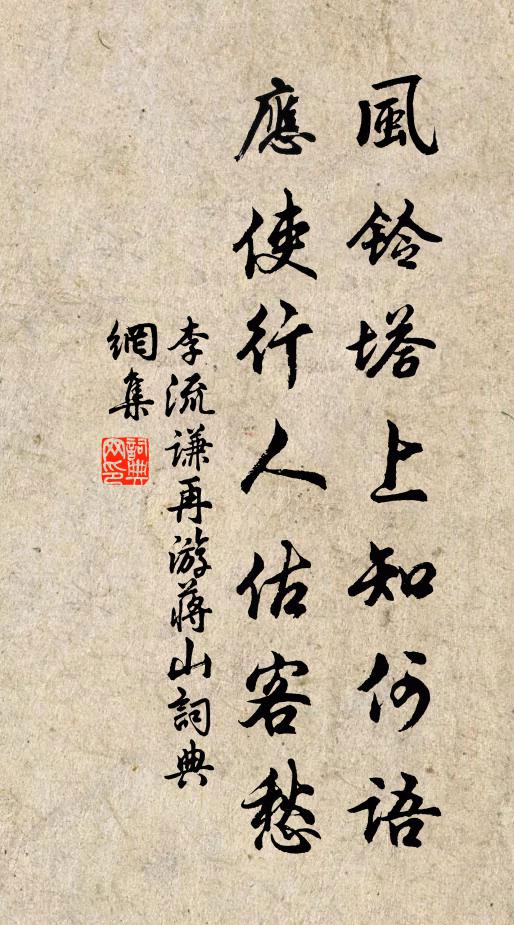 風鈴塔上知何語
應使行人估客愁
李流谦再游蔣山詞典
網集
詞典
网印